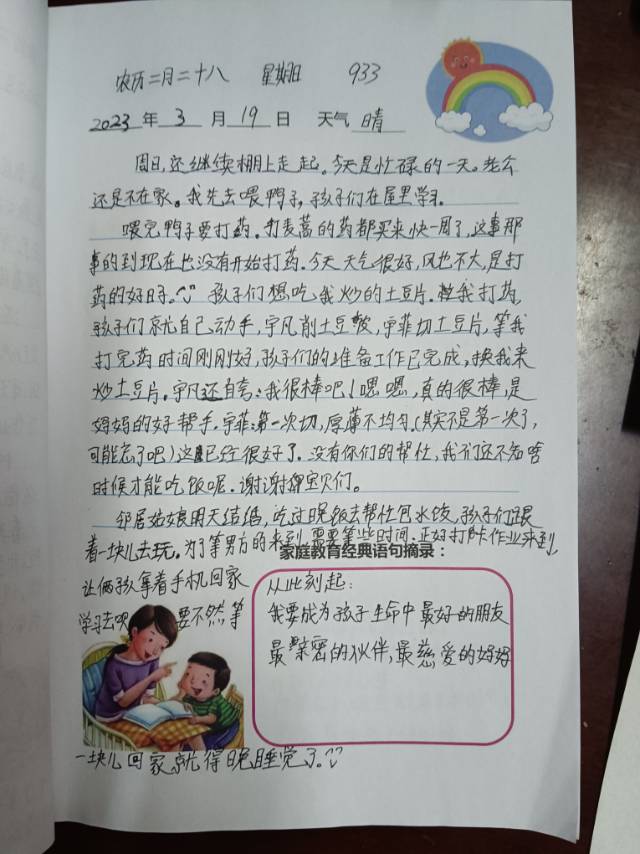 农历二月二十八 星期日 933
2023年3月19日 天气晴
周日,还继续棚上走起。今天是忙碌的一天。老公
还是不在家。我先去喂鸭子,孩子们在屋里学习。
喂完鸭子要打药。打麦蒿的药都买来快一周了,这事那
事的到现在也没有开始打药。今天天气很好,风也不大,是打
药的好日子。孩子们想吃我炒的土豆片。趁我打药,
孩子们就自己动手,宇凡削土豆皮,宇菲切土豆片,等我
打完药时间刚刚好,孩子们的准备工作已完成,换我来
炒土豆片。宇凡还自夸:我很棒吧!嗯嗯,真的很棒,是
妈妈的好帮手。宇菲第一次切,厚薄不均匀(其实不是第一次了,
可能忘了吧)这已经很好了。没有你们的帮忙,我们还不知啥
时候才能吃饭呢。谢谢宝贝们。
邻居姑娘明天结婚,吃过晚饭去帮忙包水饺,孩子们跟
着一块儿去玩。为了等男方的来到,需要等些时间。正好打卡作业来到,
家庭教育经典语句摘录:
让俩孩拿着手机回家
学习去呗 要不然等
一块儿回家就得晚睡觉了。
从此刻起:
我要成为孩子生命中最好的朋友
最亲密的伙伴,最慈爱的妈妈